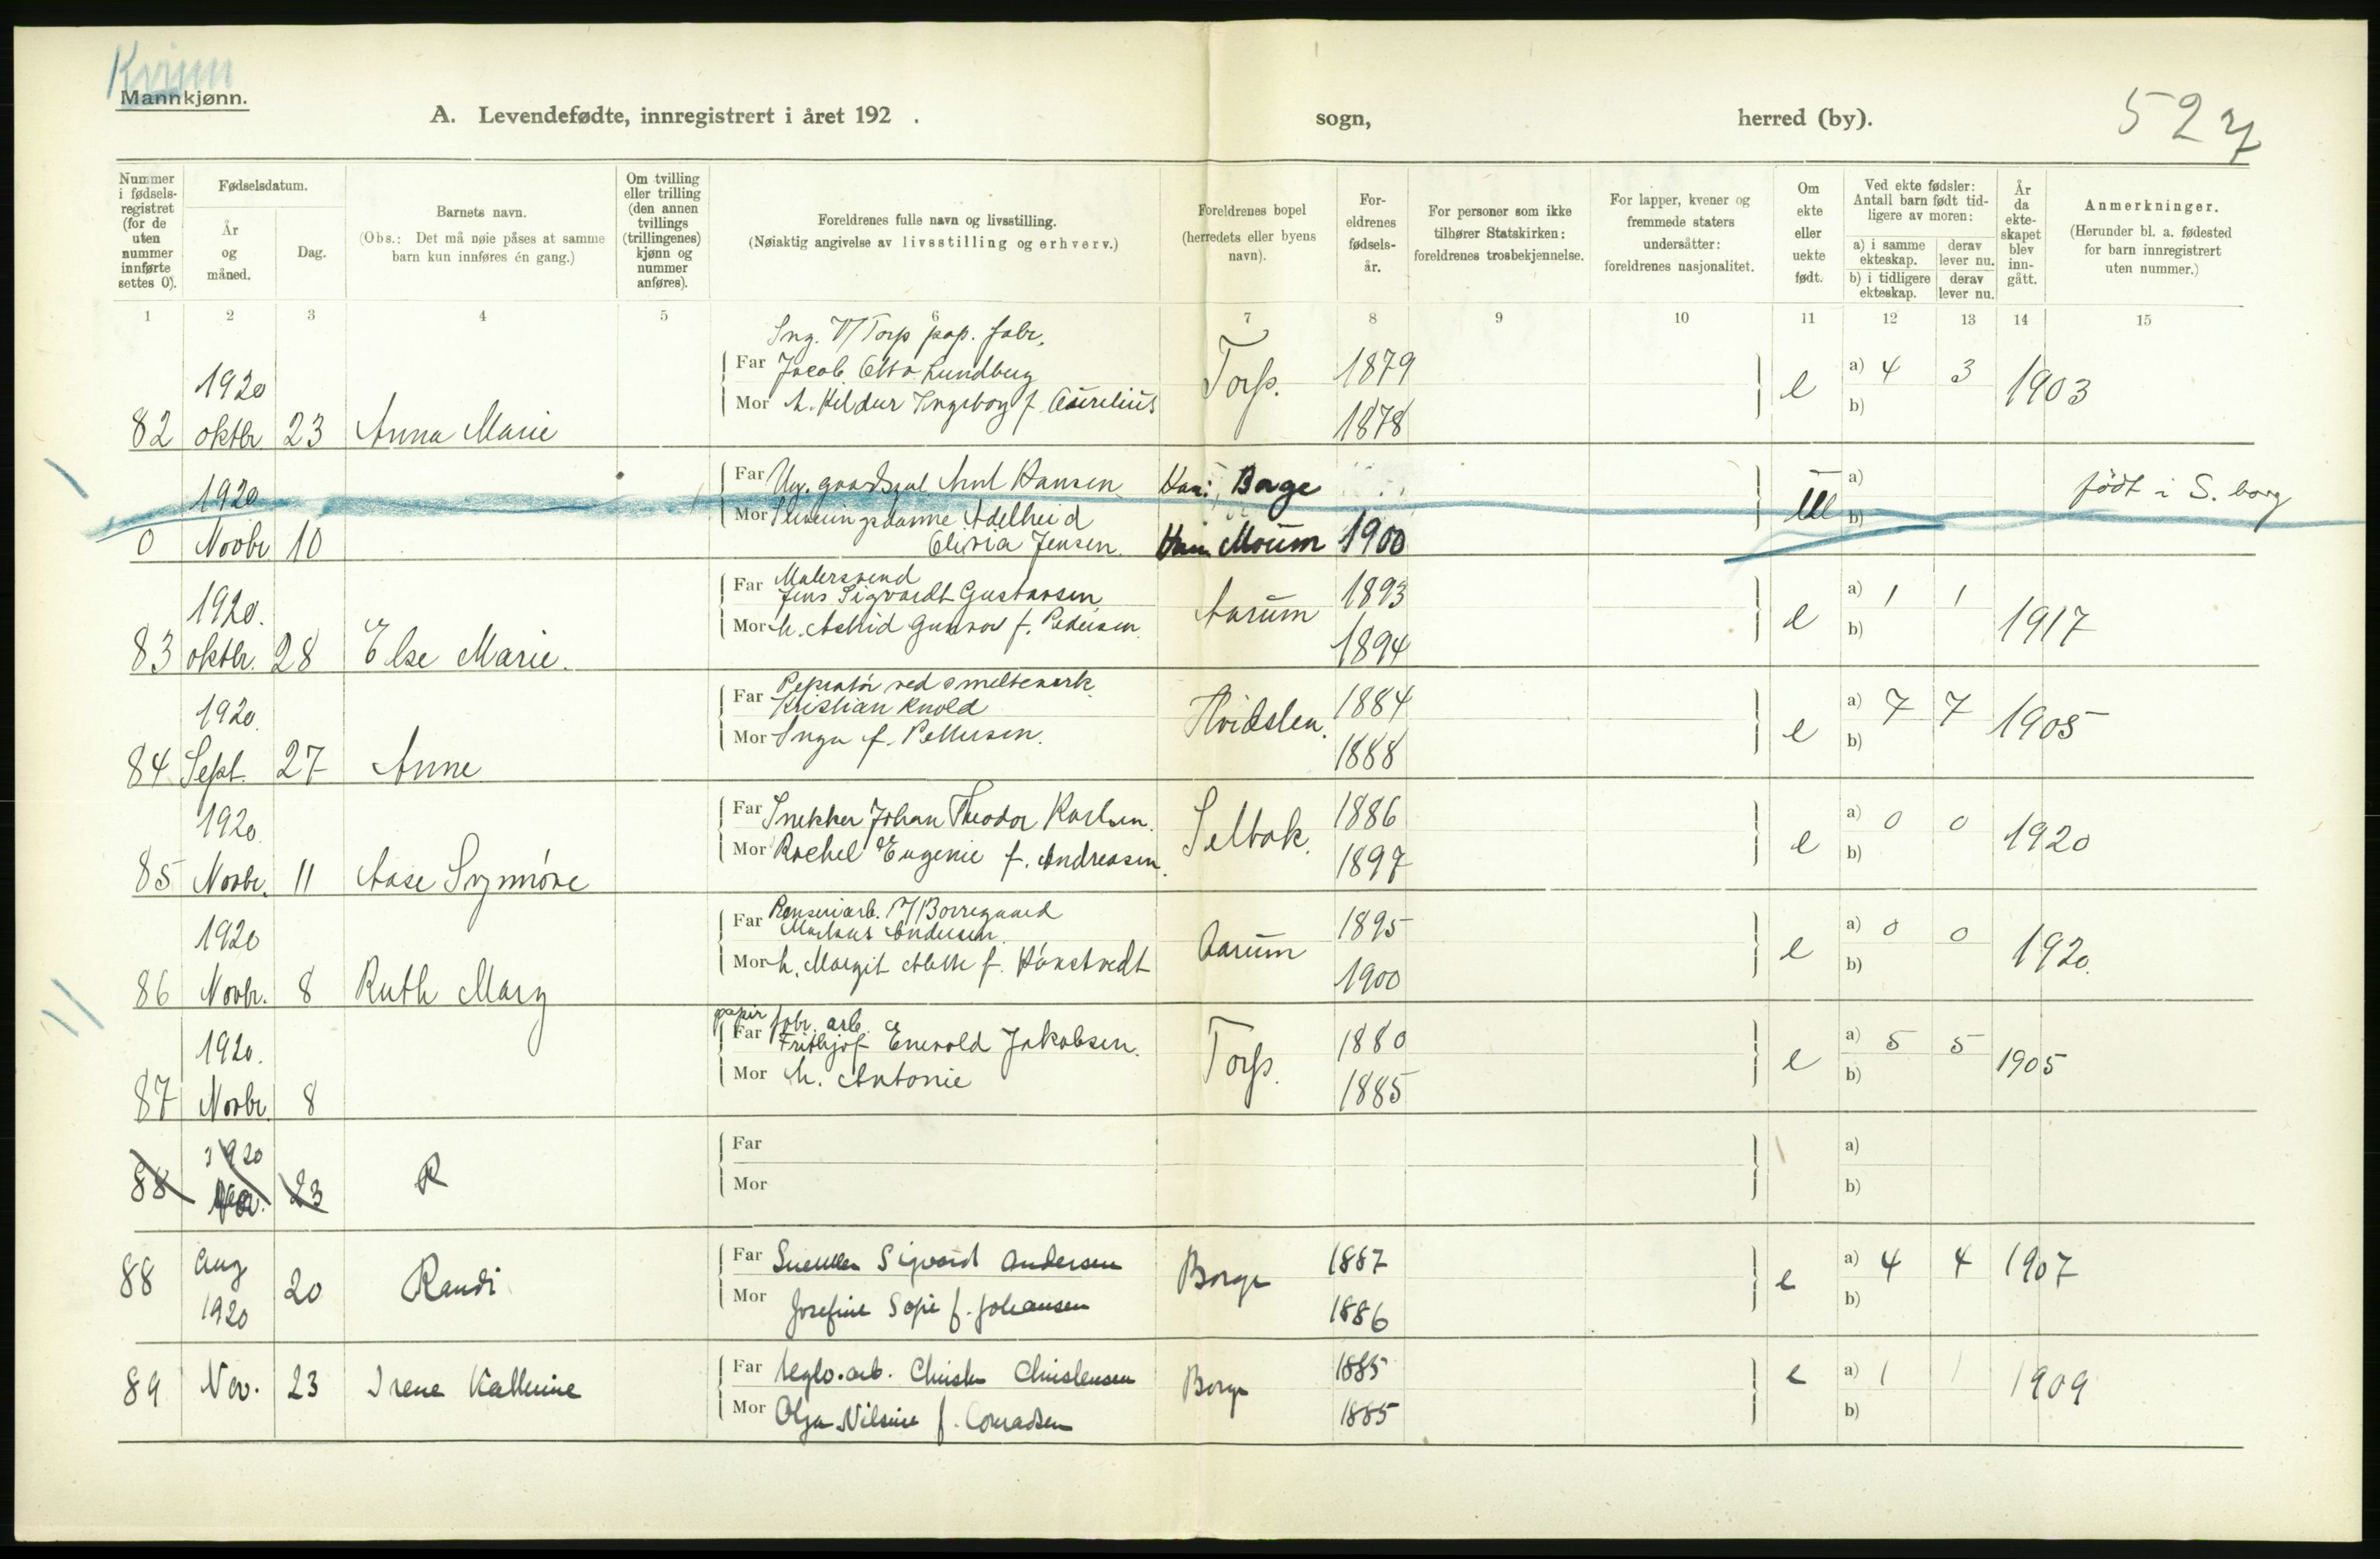 Kvinn
Mannkjønn.
A. Levendefødte, innregistrert i året 192 . sogn, herred (by).
527
Nummer i fødsels-registret (for de uten nummer innførte settes 0).
Fødselsdatum.
År og måned.
Dag.
Barnets navn.
(Obs.: Det må nøie påses at samme barn kun innføres én gang.)
Om tvilling eller trilling (den annen tvillings (trillingenes) kjønn og nummer anføres).
Foreldrenes fulle navn og livsstilling.
(Nøiaktig angivelse av livsstilling og erhverv.)
Foreldrenes bopel (herredets eller byens navn).
For-eldrenes fødsels-år.
For personer som ikke tilhører Statskirken: foreldrenes trosbekjennelse.
For lapper, kvener og fremmede staters undersåtter: foreldrenes nasjonalitet.
Om ekte eller uekte født.
Ved ekte fødsler: Antall barn født tid-ligere av moren:
a) i samme ekteskap. derav lever nu.
b) i tidligere ekteskap. derav lever nu.
År da ekte-skapet blev inn-gått.
Anmerkninger.
(Herunder bl. a. fødested for barn innregistrert uten nummer.)
1 2 3 4 5 6 7 8 9 10 11 12 13 14 15
Ing. V/Torp pap. fabr.
Far Jacob Otto Lundberg Torp. 1879 e a) 4 3 1903
1920 Mor h. Hildur Ingeborg f. Aurelius 1878 b)
82 oktbr 23 Anna Marie
Far Ug. gaardsgut Arnt Hansen Han: Borge a) født i S. borg
1920 Mor Adelheid b)
0 Novbr 10 Olivia Jensen. Hun Moum 1900
Malersvend
Far Jens Sigvardt Gustavsen Aarum 1893 e a) 1 1 1917
1920. Mor h. Astrid Gunvor f. Pedersen. 1894 b)
83 oktbr. 28 Else Marie.
Reparatör ved smelteverk.
Far Kristian Knold Hvidsten. 1884 e a) 7 7 1905
1920. Mor Inga f. Pettersen. 1888 b)
84 Sept. 27 Anne
Far Snekker Johan Theodor Karlsen. Selbak. 1886 e a) 0 0 1920
1920. Mor Rachel Eugenie f. Andreasen. 1897 b)
85 Novbr. 11 Aase Synnöve
Renseriarb. V/Borregaard
Far Markus Andersen. Aarum 1895 e a) 0 0 1920.
1920 Mor h. Margit f. 1900 b)
86 Novbr. 8 Ruth Mary
papir fabr. arb.
Far Frithjof Enevold Jakobsen. Torp. 1880 e a) 5 5 1905
1920. Mor h. Antonie 1885 b)
87 Novbr. 8
1920 Far a)
88 Nov. 23 R Mor b)
88 Aug 20 Randi Far Sigvard Andersen Borge 1887 e a) 4 4 1907
1920 Mor Josefine Sofie f. Johansen 1886 b)
89 Nov. 23 Irene Kathrine Far teglv.arb. Christensen Borge 1885 e a) 1 1 1909
Mor Olga Nilsine f. Conradsen 1885 b)